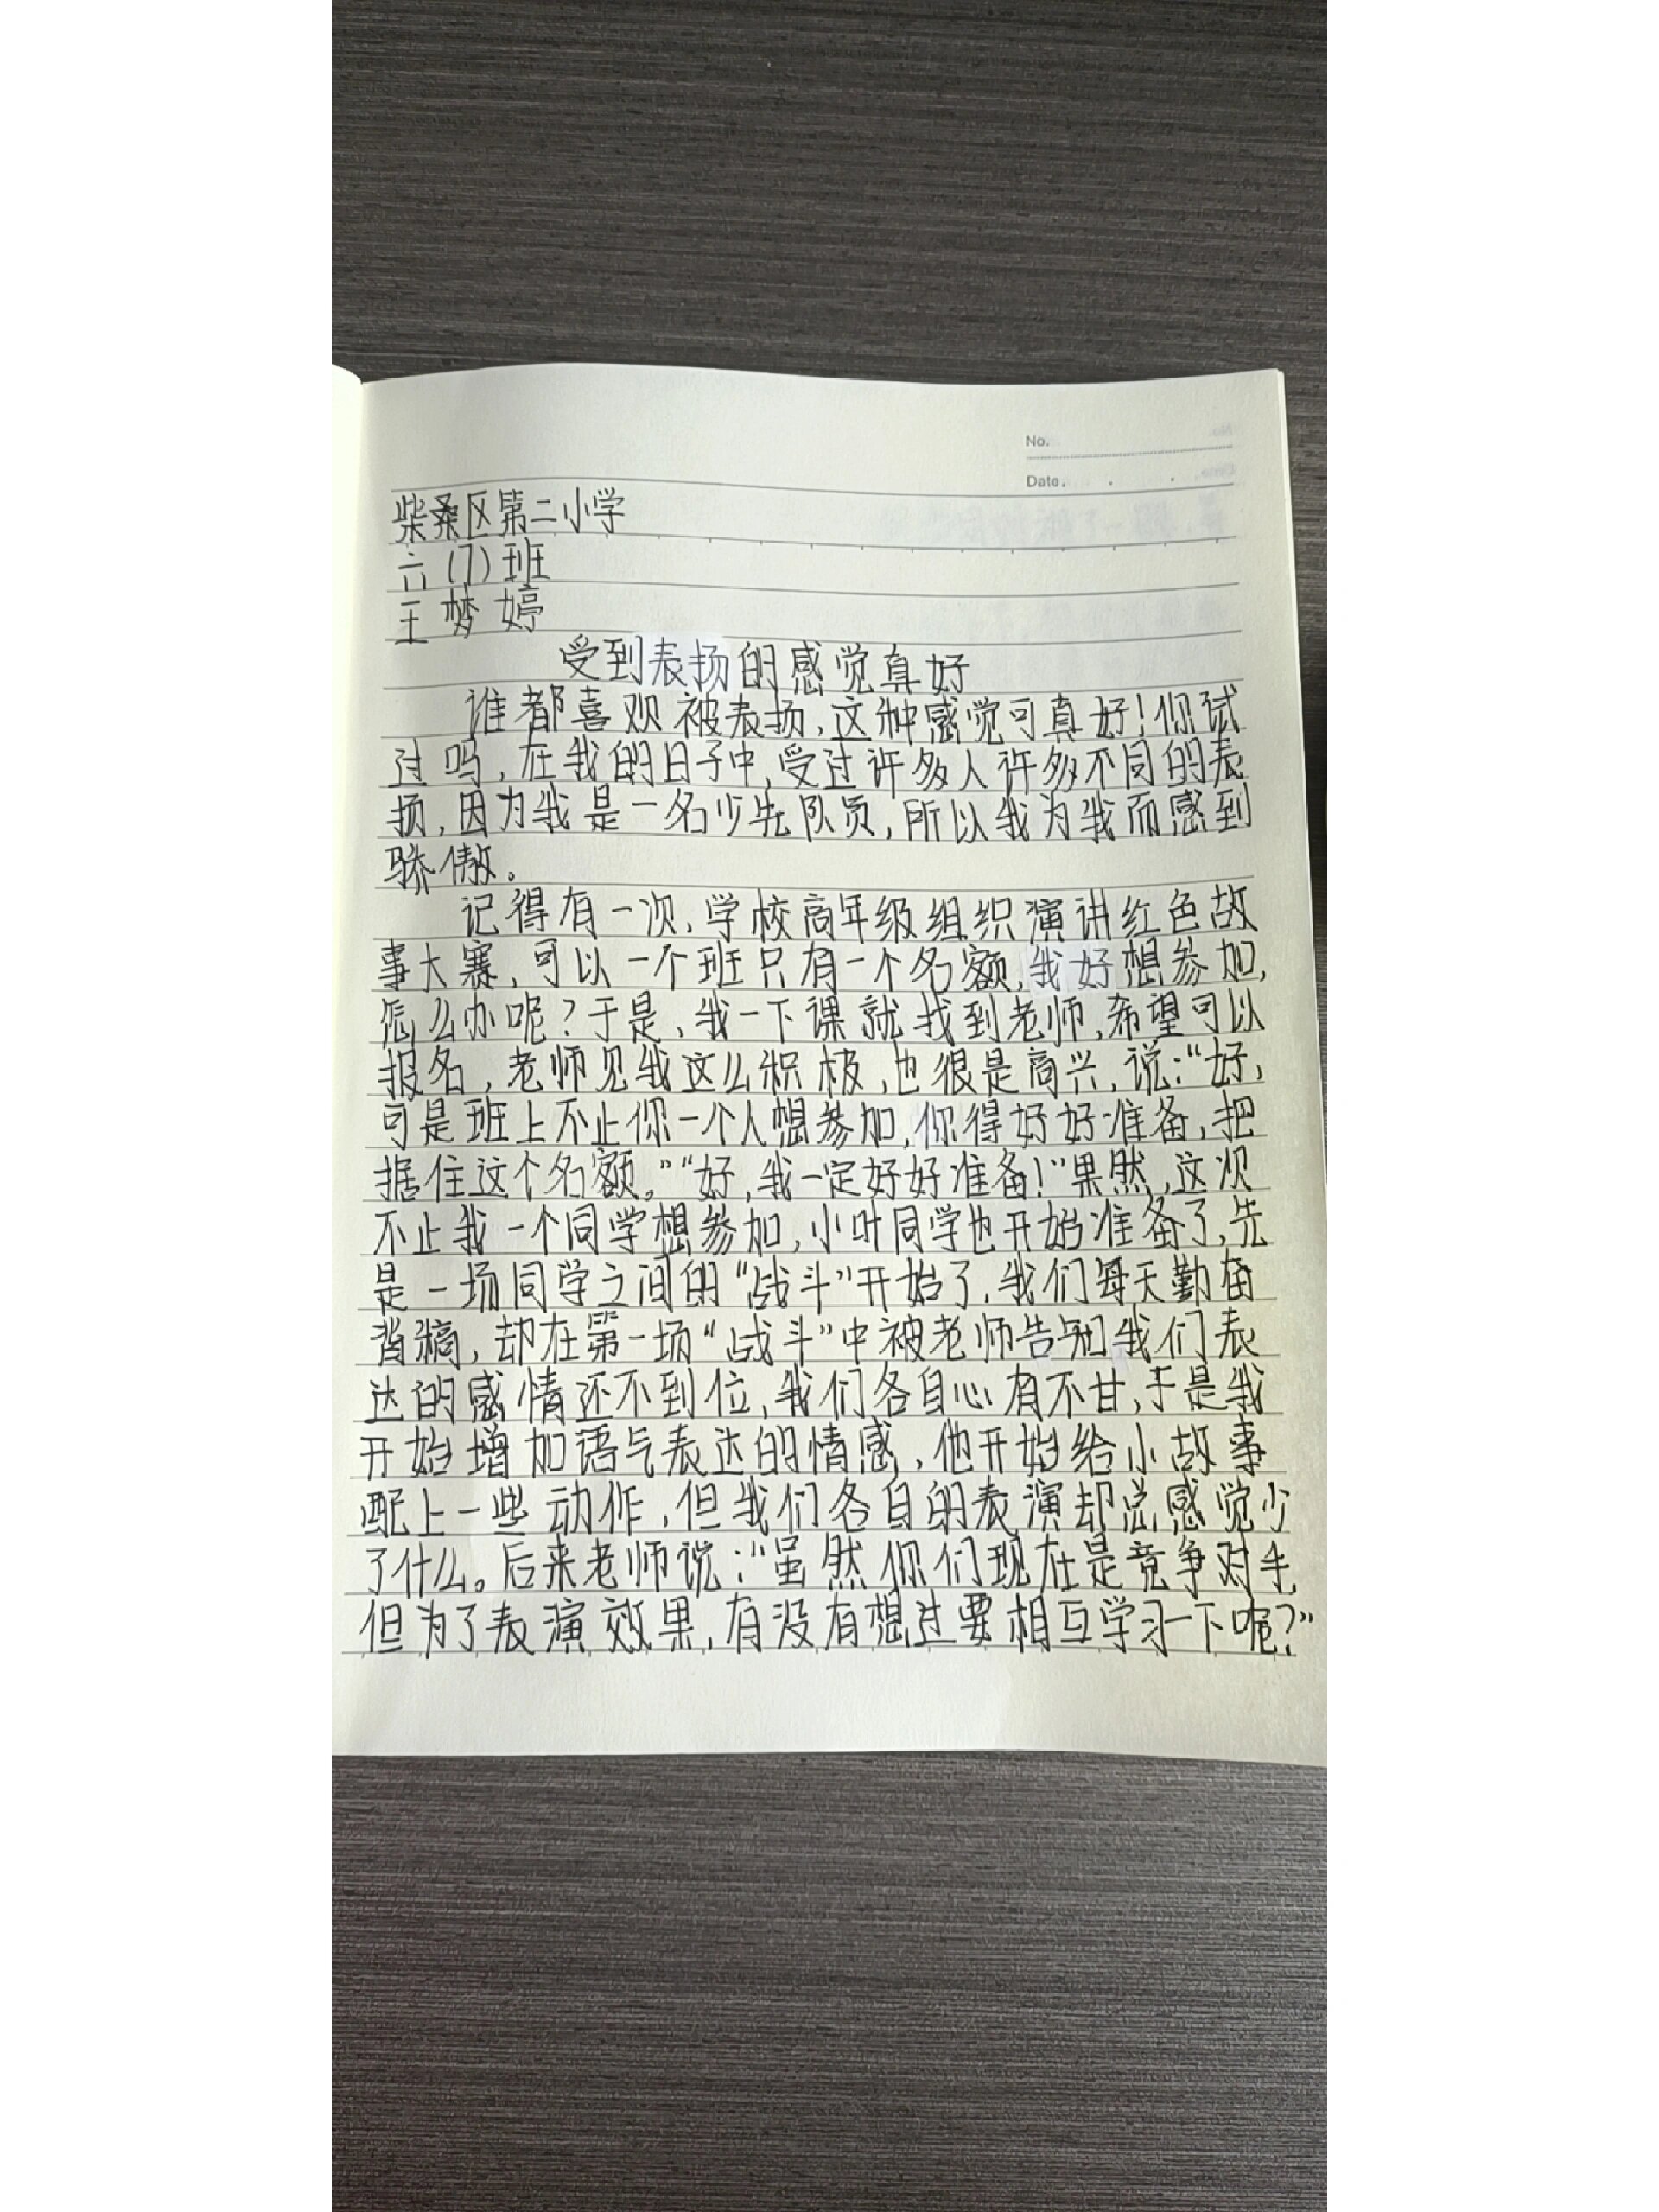 No.
Date. . .
柴桑区第二小学
六(7)班
王梦婷
受到表扬的感觉真好
谁都喜欢被表扬,这种感觉可真好!你试
过吗,在我的日子中,受过许多人许多不同的表
扬,因为我是一名少先队员,所以我为我而感到
骄傲。
记得有一次,学校高年级组织演讲红色故
事大赛,可以一个班只有一个名额,我好想参加,
怎么办呢?于是,我一下课就找到老师,希望可以
报名,老师见我这么积极,也很是高兴,说:“好,
可是班上不止你一个人想参加,你得好好准备,把
握住这个名额。”“好,我一定好好准备!”果然,这次
不止我一个同学想参加,小叶同学也开始准备了,先
是一场同学之间的“战斗”开始了,我们每天勤奋
背稿,却在第一场“战斗”中被老师告知我们表
达的感情还不到位,我们各自心有不甘,于是我
开始增加语气表达的情感,他开始给小故事
配上一些动作,但我们各自的表演却总感觉少
了什么。后来老师说:“虽然你们现在是竞争对手,
但为了表演效果,有没有想过要相互学习一下呢?”